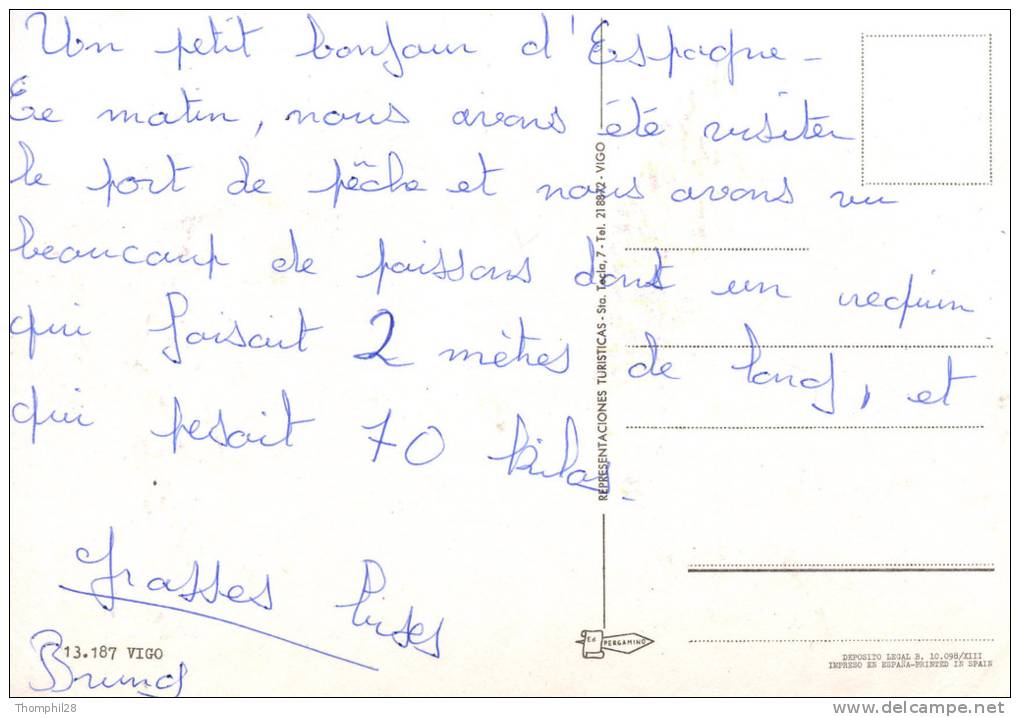 Un petit bonjour d'Espagne -
Ce matin, nous avons été visiter
le port de pêche et nous avons vu
beaucoup de poissons dont un requin
qui faisait 2 mètres de long, et
qui pesait 70 kilos.
Grosses bises
Bruno
13.187 VIGO
REPRESENTACIONES TURISTICAS - Sta. Tecla, 7 - Tel. 218872 - VIGO
Ed. PERGAMINO
DEPOSITO LEGAL B. 10.098/XIII
IMPRESO EN ESPAÑA-PRINTED IN SPAIN
Thomphil28
www.delcampe.net